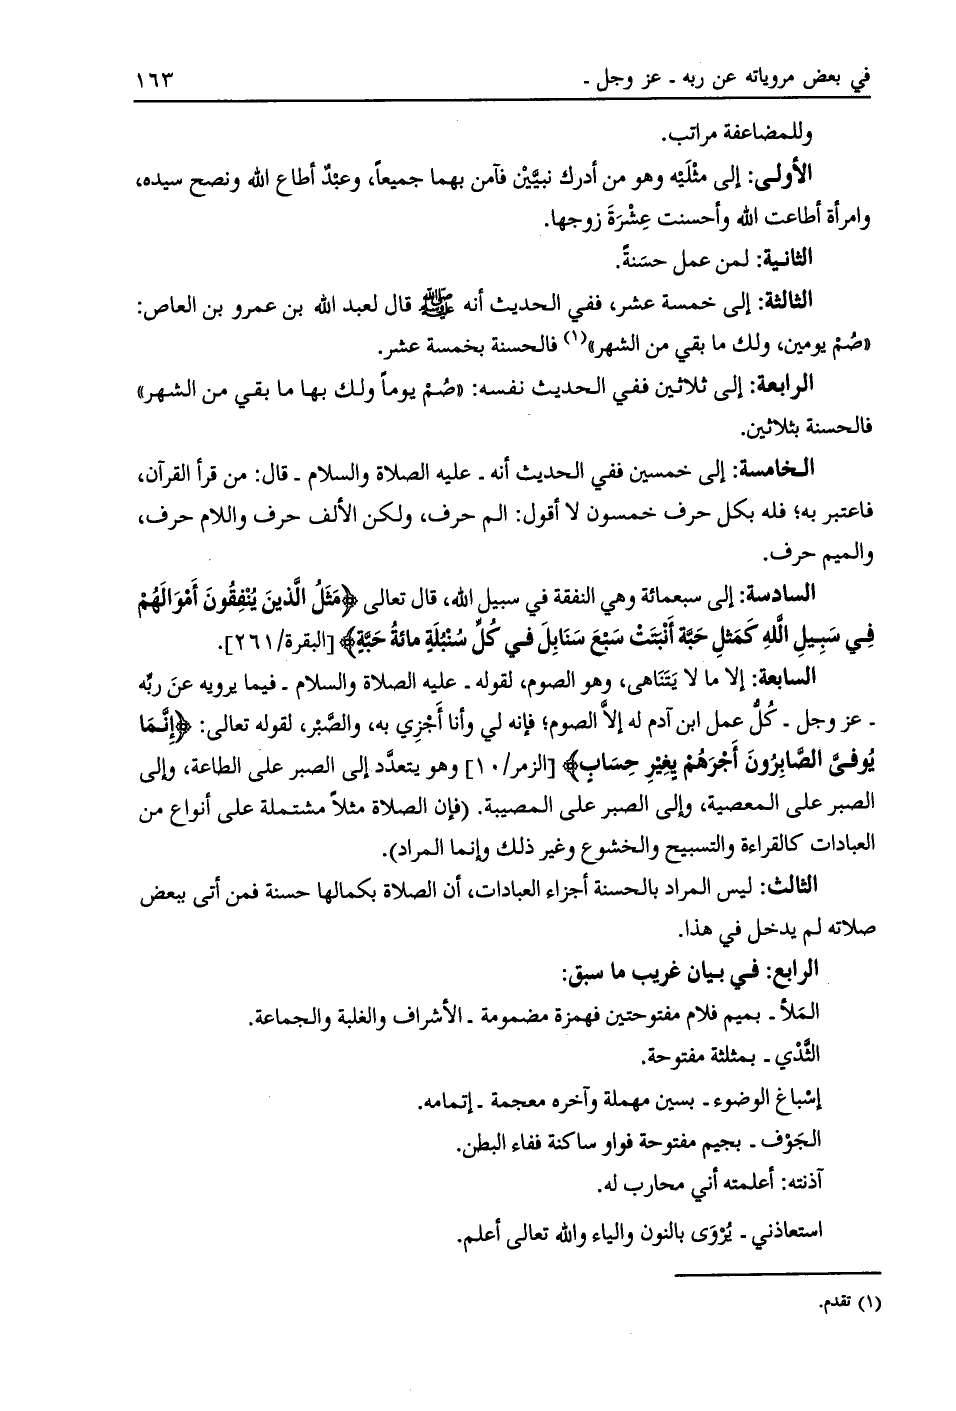 في بعض مروياته عن ربه ـ عز وجل ـ ١٦٣
وللمضاعفة مراتب.
الأولى: إلى مثْلَيْه وهو من أدرك نبيَّيْن فآمن بهما جميعاً، وعبْدٌ أطاع الله ونصح سيده،
وامرأة أطاعت الله وأحسنت عِشْرَةَ زوجها.
الثانية: لمن عمل حسَنةً.
الثالثة: إلى خمسة عشر، ففي الحديث أنه ﷺ قال لعبد الله بن عمرو بن العاص:
«صُمْ يومين، ولك ما بقي من الشهر»(١) فالحسنة بخمسة عشر.
الرابعة: إلى ثلاثين ففي الحديث نفسه: «صُمْ يوماً ولك بها ما بقي من الشهر»
فالحسنة بثلاثين.
الخامسة: إلى خمسين ففي الحديث أنه ـ عليه الصلاة والسلام ـ قال: من قرأ القرآن،
فاعتبر به؛ فله بكل حرف خمسون لا أقول: الم حرف، ولكن الألف حرف واللام حرف،
والميم حرف.
السادسة: إلى سبعمائة وهي النفقة في سبيل الله، قال تعالى ﴿مَثَلُ الَّذينَ يُنْفِقُونَ أَمْوَالَهُمْ
فِي سَبِيلِ اللَّهِ كَمَثلِ حَبَّة أَنْبَتَتْ سَبْعَ سَنَابِلَ في كُلِّ سُنْبُلَةٍ مائةُ حَبَّةٍ﴾ [البقرة/٢٦١].
السابعة: إلا ما لا يَتَنَاهى، وهو الصوم، لقوله ـ عليه الصلاة والسلام ـ فيما يرويه عنَ ربِّه
ـ عز وجل ـ كُلُّ عمل ابن آدم له إلاَّ الصوم؛ فإنه لي وأنا أَجْزِي به، والصَّبْر، لقوله تعالى: ﴿إِنَّمَا
يُوفىَّ الصَّابِرُونَ أَجْرَهُمْ بِغَيْرِ حِسَابٍ﴾ [الزمر/١٠] وهو يتعدَّد إلى الصبر على الطاعة، وإلى
الصبر على المعصية، وإلى الصبر على المصيبة. (فإن الصلاة مثلاً مشتملة على أنواع من
العبادات كالقراءة والتسبيح والخشوع وغير ذلك وإنما المراد).
الثالث: ليس المراد بالحسنة أجزاء العبادات، أن الصلاة بكمالها حسنة فمن أتى ببعض
صلاته لم يدخل في هذا.
الرابع: في بيان غريب ما سبق:
المَلأ ـ بميم فلام مفتوحتين فهمزة مضمومة ـ الأشراف والغلبة والجماعة.
الثَّدْي ـ بمثلثة مفتوحة.
إسْباغ الوضوء ـ بسين مهملة وآخره معجمة ـ إتمامه.
الجَوْف ـ بجيم مفتوحة فواو ساكنة ففاء البطن.
آذنته: أعلمته أني محارب له.
استعاذني ـ يُرْوَى بالنون والياء والله تعالى أعلم.
(١) تقدم.